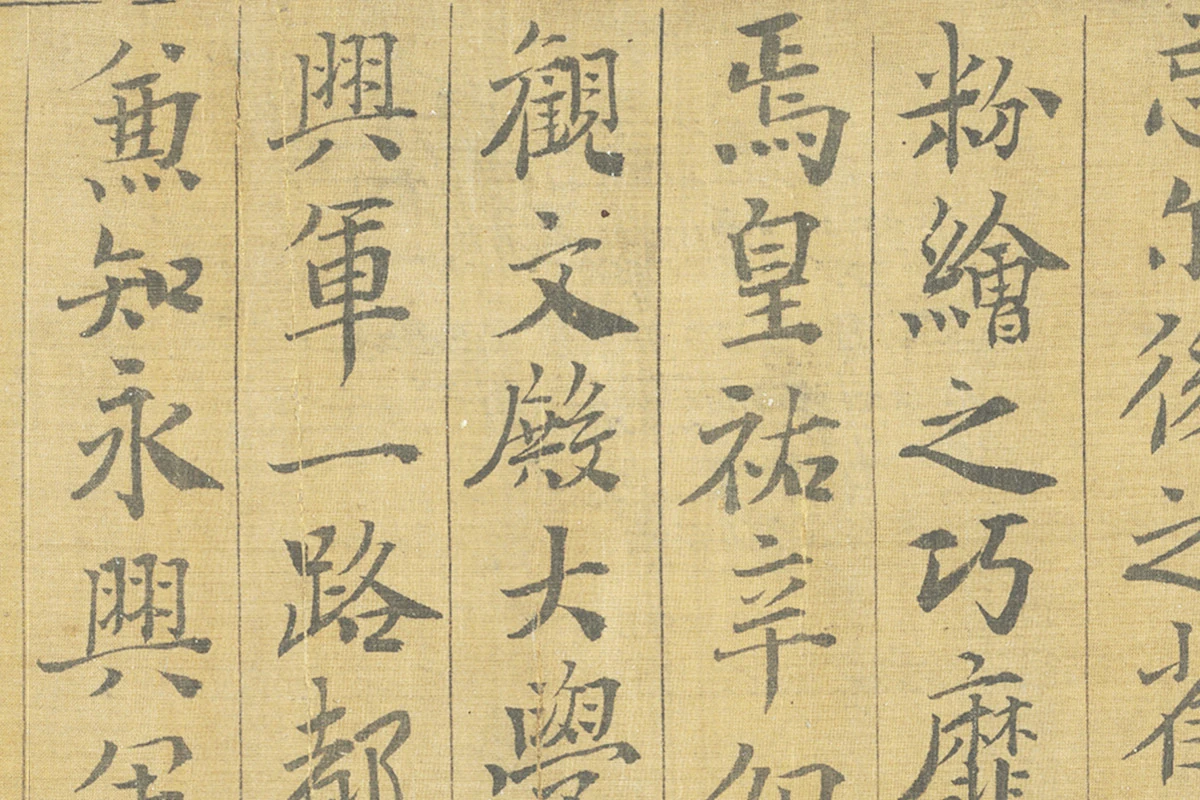 後之者
粉繪之巧靡
焉皇祐辛卯
觀文殿大學
興軍一路都
兼知永興軍